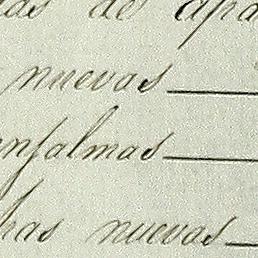 as de apa
nuevas
enjalmas
has nuevas